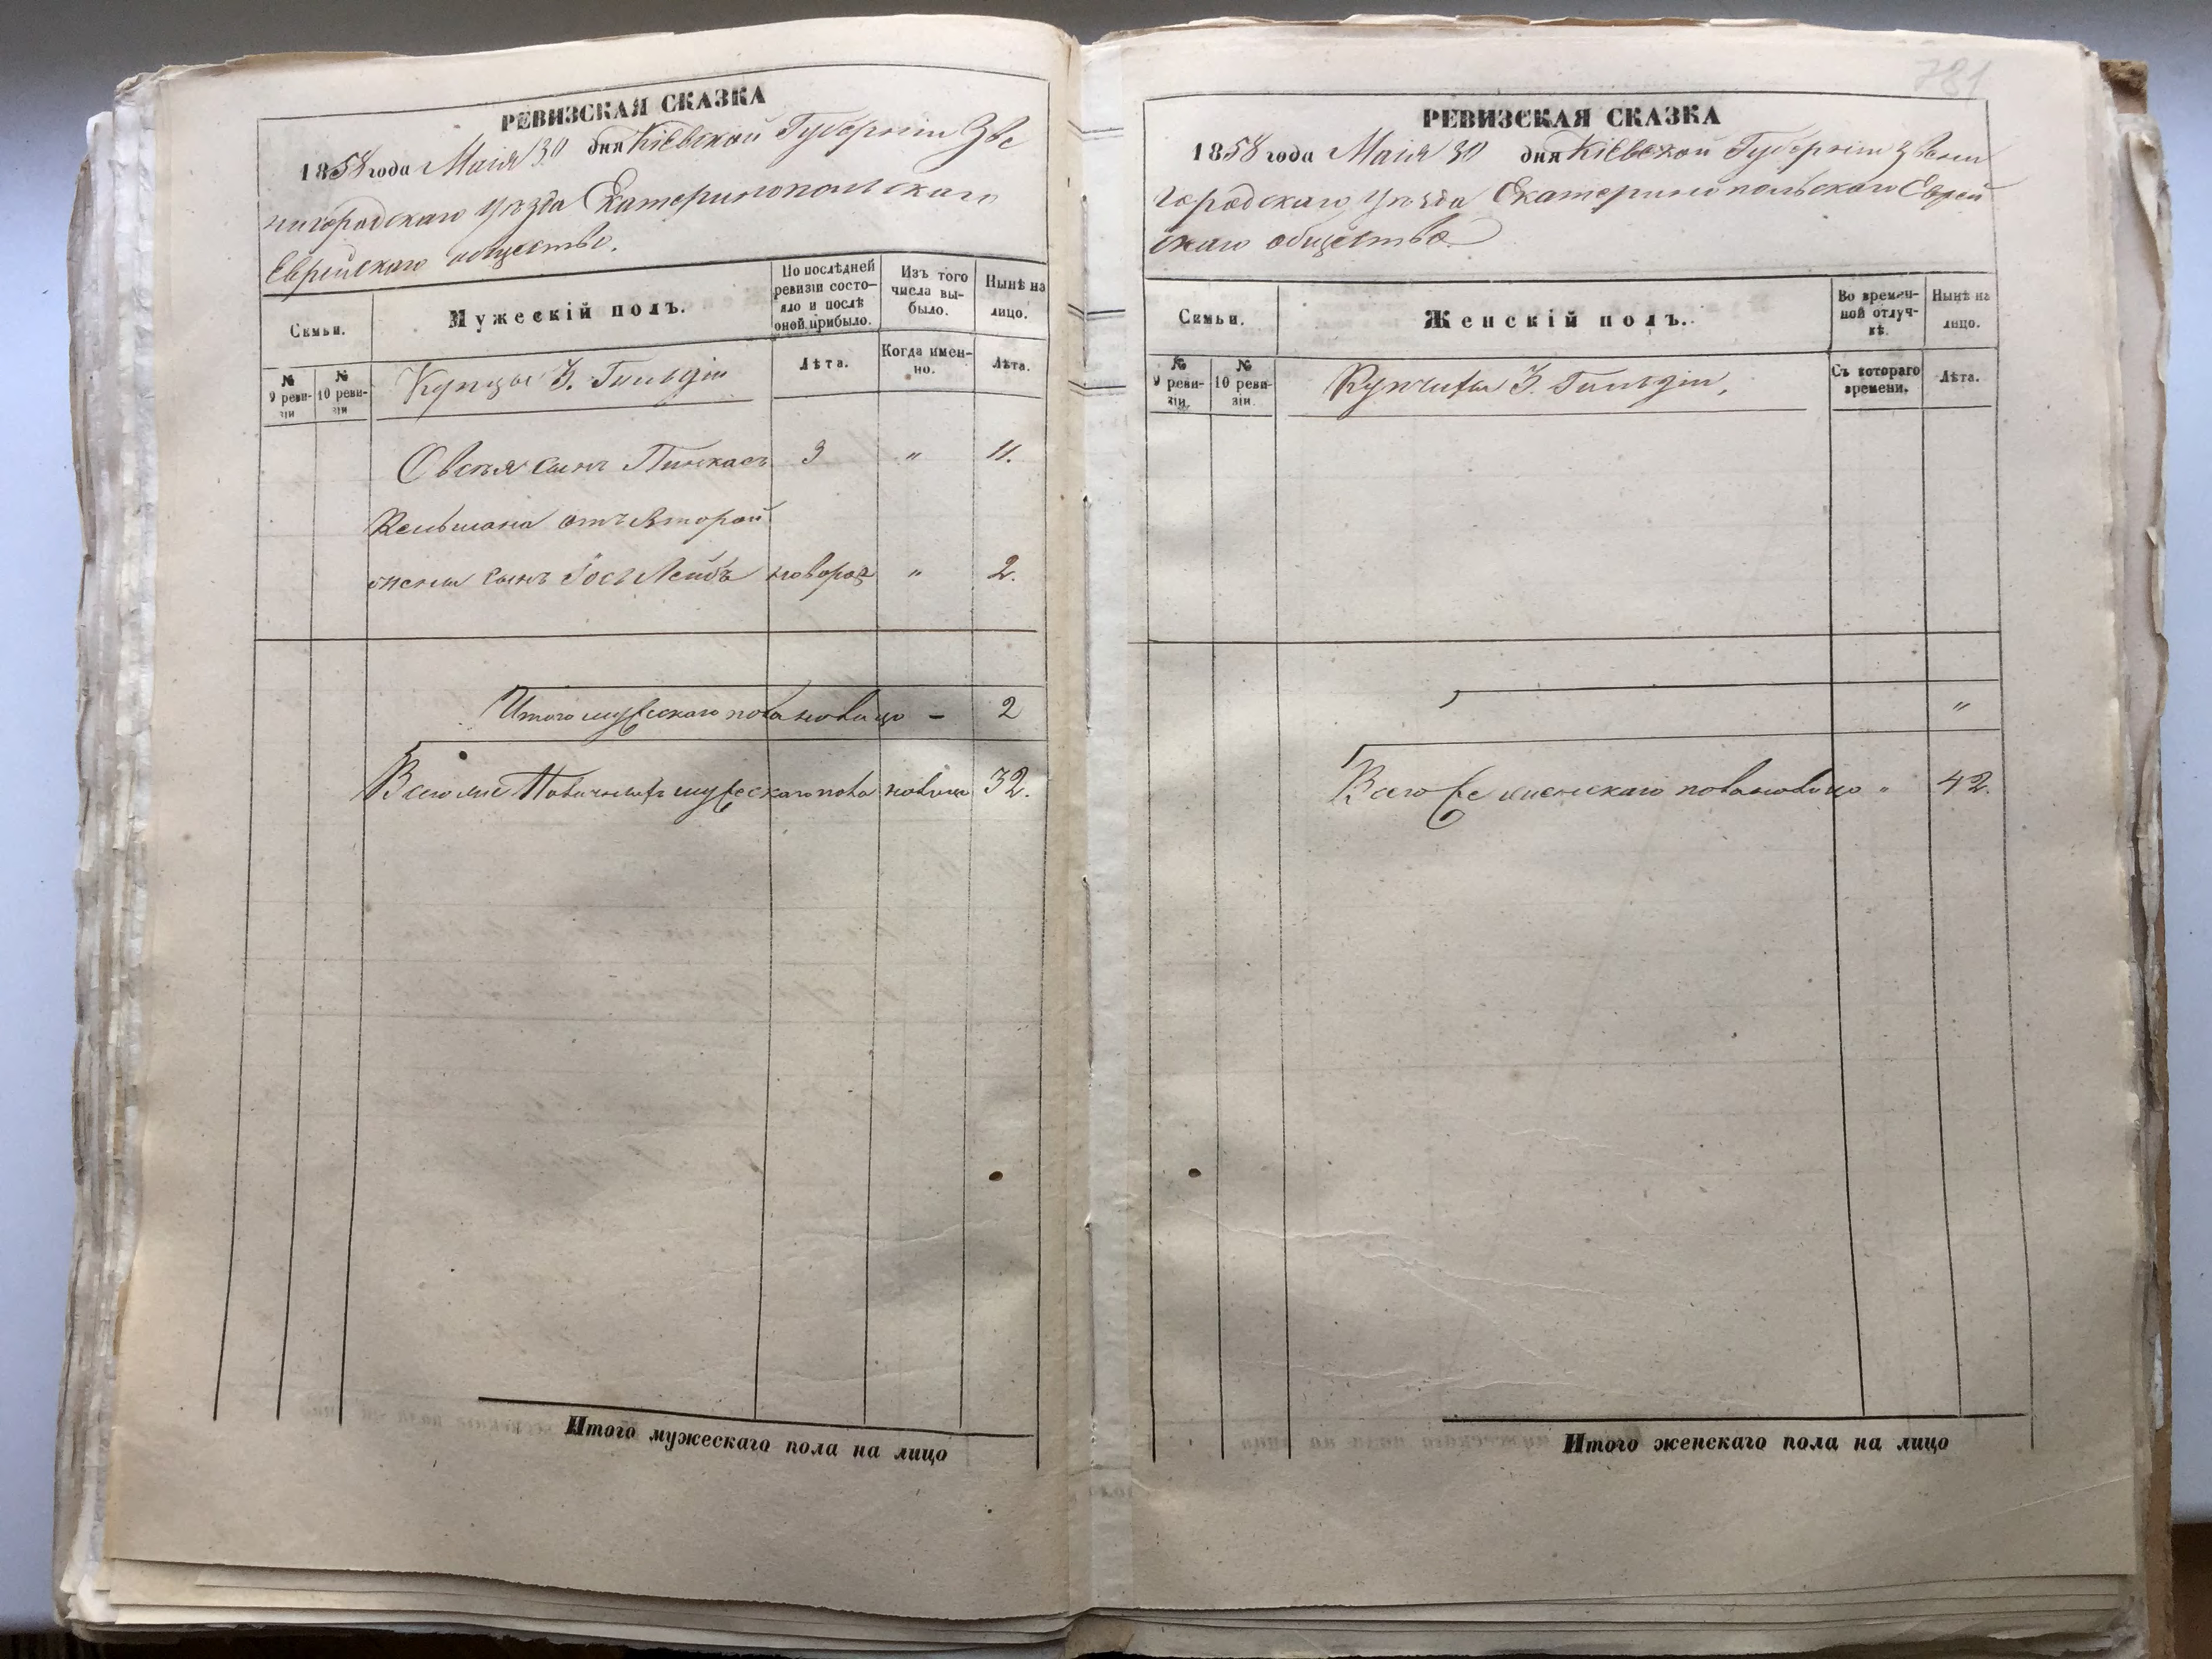 РЕВИЗСКАЯ СКАЗКА
1858 года Маія 30 дня Кіевской Губерніи Зве
нигородскаго уѣзда Екатеринопольскаго
Еврейскаго общества.
Семьи.
Мужескій полъ.
По послѣдней ревизіи состо-
яло и послѣ
оной прибыло.
Изъ того
числа вы-
было.
Нынѣ на
лицо.
№
9 реви-
зіи
№
10 реви-
зіи
Купцы 3. Гильдіи
Лѣта.
Когда имен-
но.
Лѣта.
Овсѣя сынъ Пинкасъ 3 " 11.
Кельмана отъ второй
жены сынъ Іось Лейбъ новорож " 2.
Итого мужескаго пола на лицо - 2
Всего мужескаго пола на лицо 32.
Итого мужескаго пола на лицо
781
РЕВИЗСКАЯ СКАЗКА
1858 года Маія 30 дня Кіевской Губерніи Звени
городскаго уѣзда Екатеринопольскаго Еврей
скаго общества
Семьи.
Женскій полъ.
Во времен-
ной отлуч-
кѣ.
Нынѣ на
лицо.
№
9 реви-
зіи.
№
10 реви-
зіи.
Купчихи 3. Гильдіи,
Съ котораго
времени.
Лѣта.
"
Всего женскаго пола на лицо " 42.
Итого женскаго пола на лицо